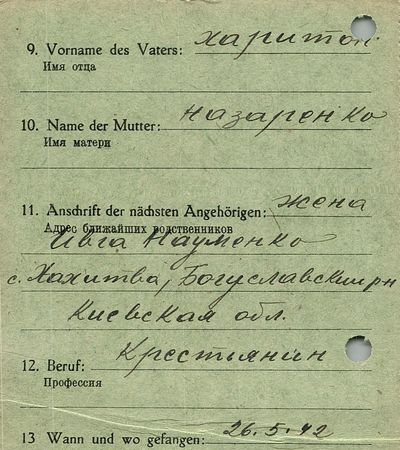 9. Vorname des Vaters: Харитон
Имя отца
10. Name der Mutter: Назаренко
Имя матери
11. Anschrift der nächsten Angehörigen: жена
Адрес ближайших родственников
Ивга Науменко
с. Хохитва, Богуславский рн
Киевская обл.
12. Beruf: Крестьянин
Профессия
13 Wann und wo gefangen: 26.5.42